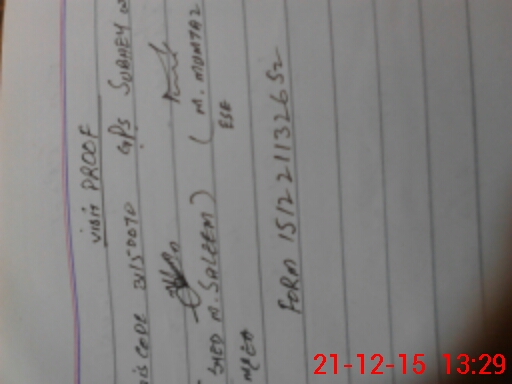 VISIT PROOF
MIS CODE 31150070 GPS SUBHEY
SAED M. SALEEM) (M. MOMTAZ
MEEA ESE
FORM 151221132652
21-12-15 13:29